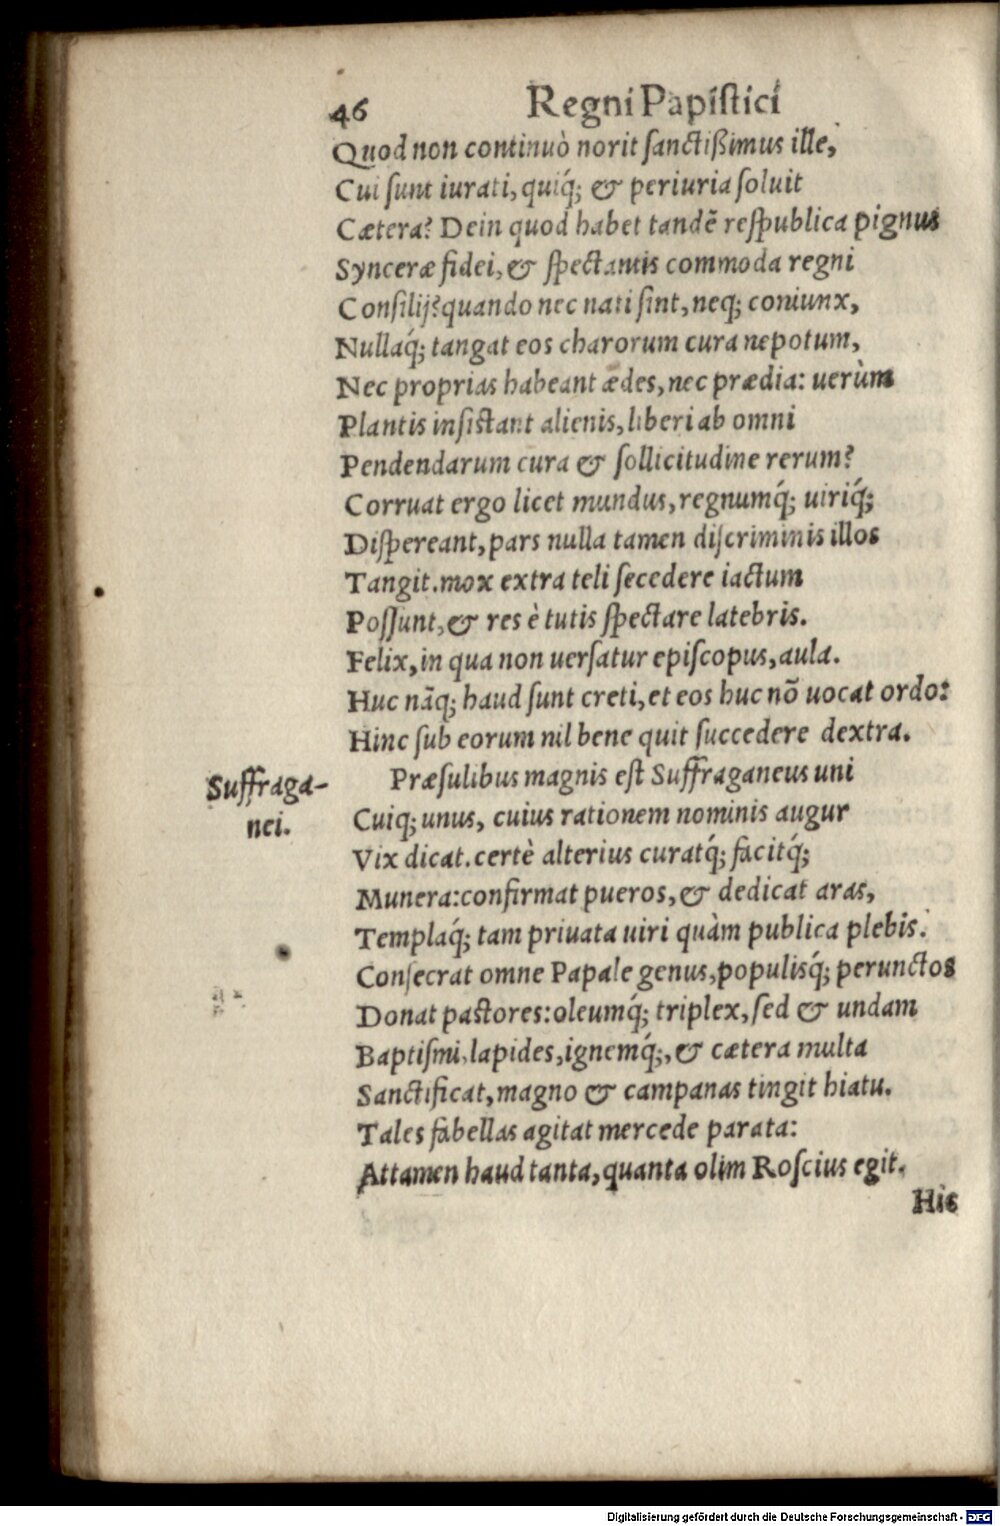 46 Regni Papistici
Quod non continuò norit sanctißimus ille,
Cui sunt iurati, quiq́; & periuria soluit
Cætera? Dein quod habet tandẽ respublica pignus
Synceræ fidei, & spectantis commoda regni
Consilij? quando nec nati sint, neq; coniunx,
Nullaq́; tangat eos charorum cura nepotum,
Nec proprias habeant ædes, nec prædia: uerùm
Plantis insistant alienis, liberi ab omni
Pendendarum cura & sollicitudine rerum?
Corruat ergo licet mundus, regnumq́; uiriq́;
Dispereant, pars nulla tamen discriminis illos
Tangit. mox extra teli secedere iactum
Possunt, & res è tutis spectare latebris.
Felix, in qua non uersatur episcopus, aula.
Huc nãq; haud sunt creti, et eos huc nõ uocat ordo:
Hinc sub eorum nil bene quit succedere dextra.
Suffraga-
nei.
Præsulibus magnis est Suffraganeus uni
Cuiq; unus, cuius rationem nominis augur
Vix dicat. certè alterius curatq́; facitq́;
Munera: confirmat pueros, & dedicat aras,
Templaq́; tam priuata uiri quàm publica plebis.
Consecrat omne Papale genus, populisq́; perunctos
Donat pastores: oleumq́; triplex, sed & undam
Baptismi, lapides, ignemq́;, & cætera multa
Sanctificat, magno & campanas tingit hiatu.
Tales fabellas agitat mercede parata:
Attamen haud tanta, quanta olim Roscius egit.
His
Digitalisierung gefördert durch die Deutsche Forschungsgemeinschaft - DFG